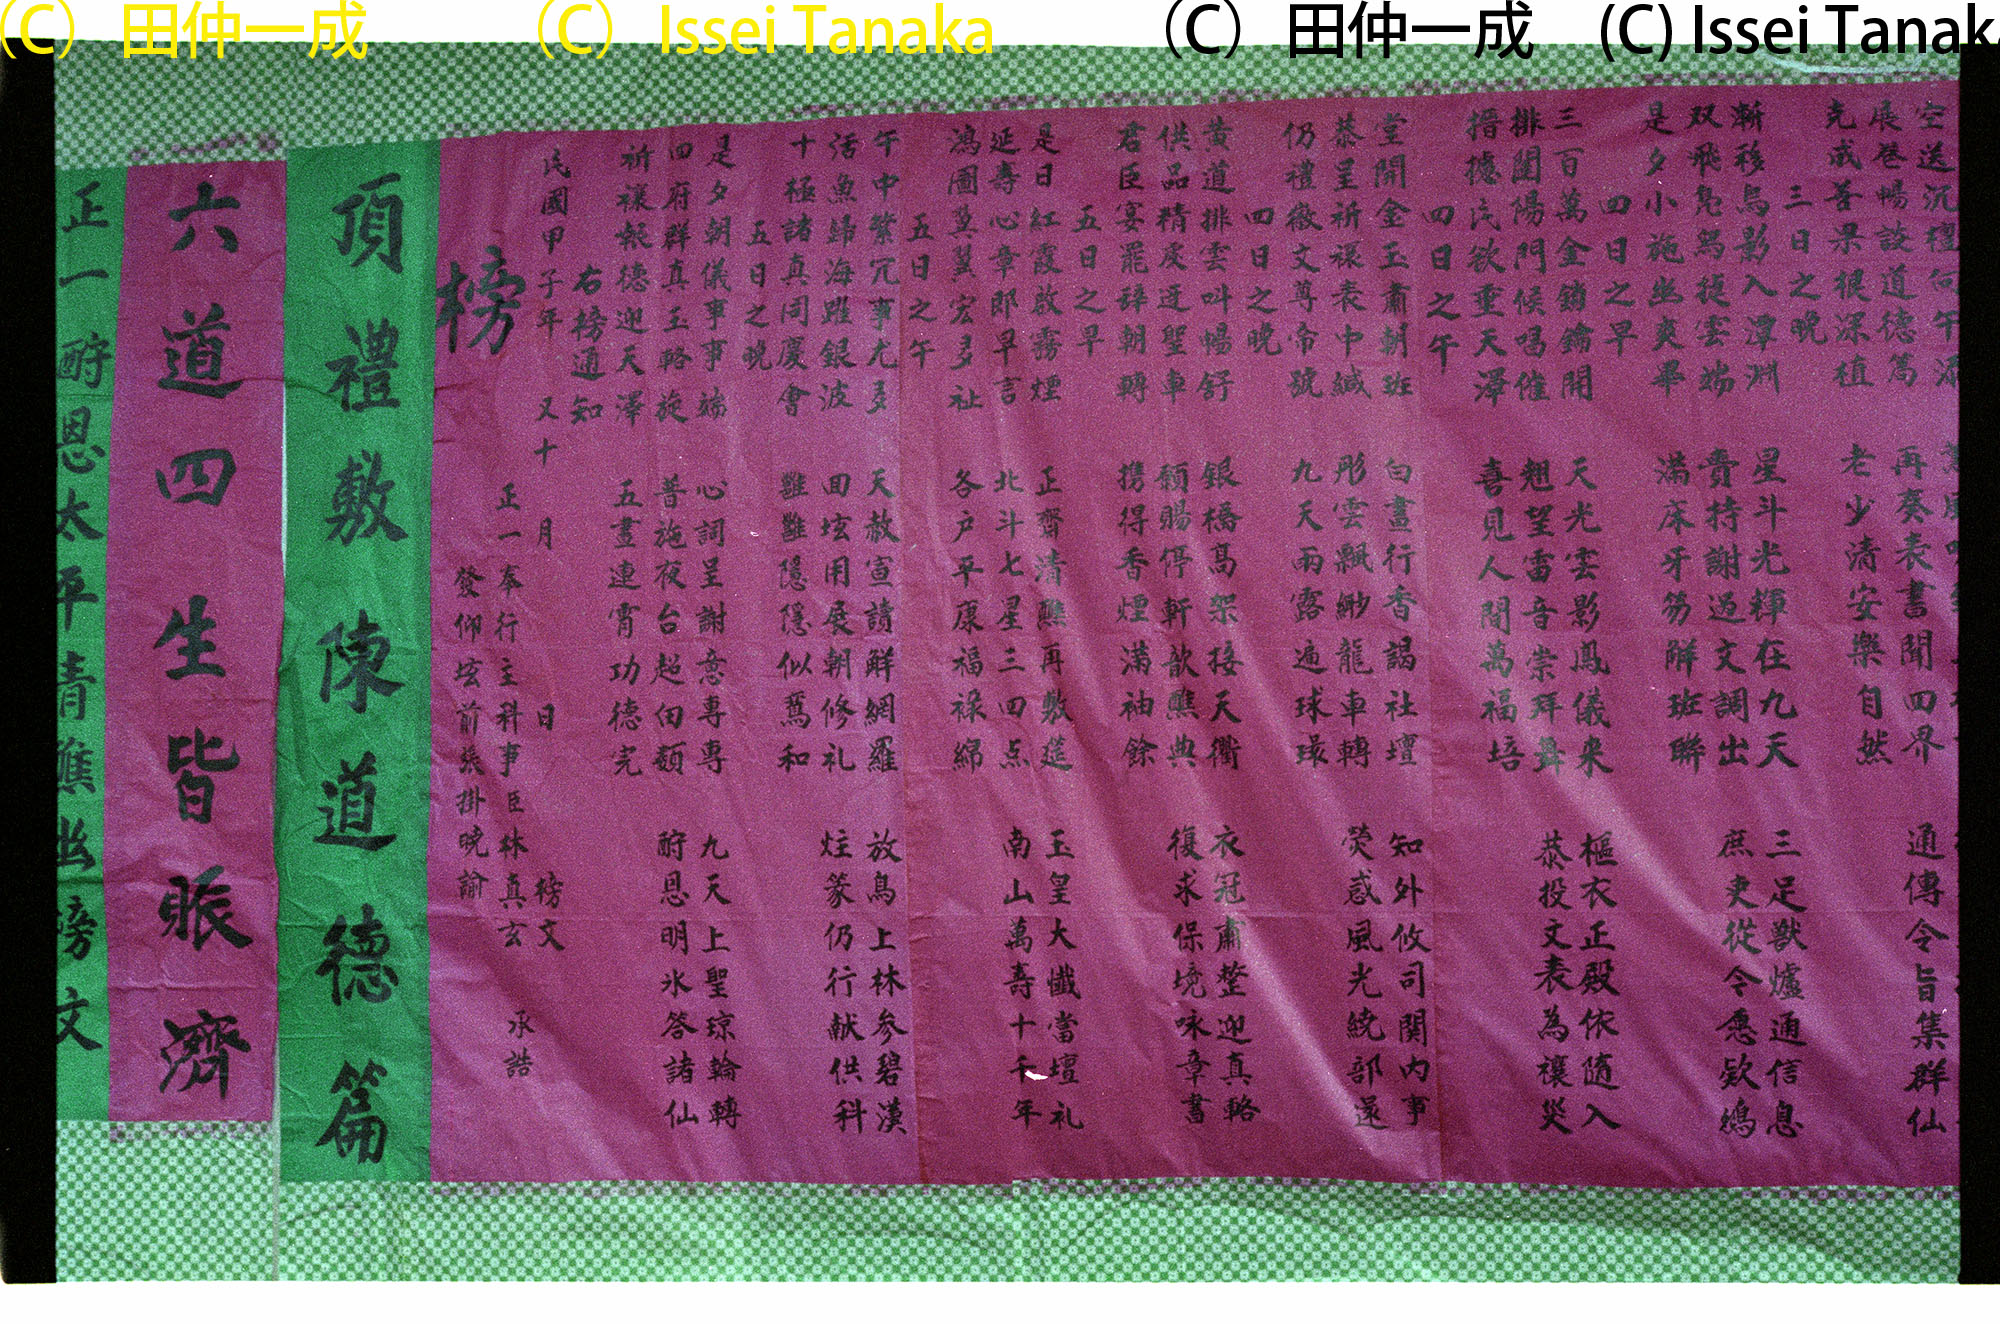 (C) 田仲一成 (C) Issei Tanaka (C) 田仲一成 (C) Issei Tanak
空送沉檀句午深
展卷暢談道德篤 再奏表書聞四界 通傳令旨集群仙
克成善果根深植 老少清安樂自然
三日之晚
漸移烏影入潭洲 星斗光輝在九天 三足獸爐通信息
双飛鳧舄徒雲端 賣持謝過文調出 庶吏從令愿欵鴻
是夕小施坐爽畢 滿床牙笏解班聯
四日之早
三百萬金鎖鑰開 天光雲影鳳儀来 樞衣正殿依隨入
排闥陽門候唱催 翹望雷音崇拜舞 恭投文表為禳災
搢摅民欲垂天澤 喜見人間萬福培
四日之午
堂開金玉肅朝班 白晝行香謁社壇 知外攸司関内事
恭呈祈禳表中緘 彤雲飄緲龍車轉 熒惑風光繞部還
仍禮徽文尊帝號 九天雨露遍球璟
四日之晚
黄道排雲叫暢舒 銀橋高架接天衢 衣冠肅整迎真輅
供品精虔迓聖車 頒賜停軒歆醮典 復求保境咏章書
君臣宴罷辞朝轉 携得香煙滿袖餘
五日之早
是日紅霞散霧煙 正齋清醮再敷莚 玉皇大懺當壇礼
延壽心章郎早言 北斗七星三四点 南山萬壽十千年
鴻圖奠翼宏多祉 各户平康福祿綿
五日之午
午中繁冗事尤多 天赦宣讀解網羅 放鳥上林参碧漢
活魚歸海躍銀波 田垓用展朝修礼 炷篆仍行献供科
十極諸真同慶會 雝雝隱隱似鸞和
五日之晚
是夕朝儀事事端 心詞呈謝意專專 九天上聖琼輪轉
四府群真玉輅旋 普施夜台超 酧恩明氷答諸仙
祈禳報德迎天澤 五晝連宵功德完
右榜通知
民國甲子年 又十 月 日 榜文
正一奉行主科事臣林真玄 承誥
榜 發仰垓前張掛曉諭
頂禮敷陳道德篇
六道四生皆賑濟
正一酧恩太平清醮幽榜文